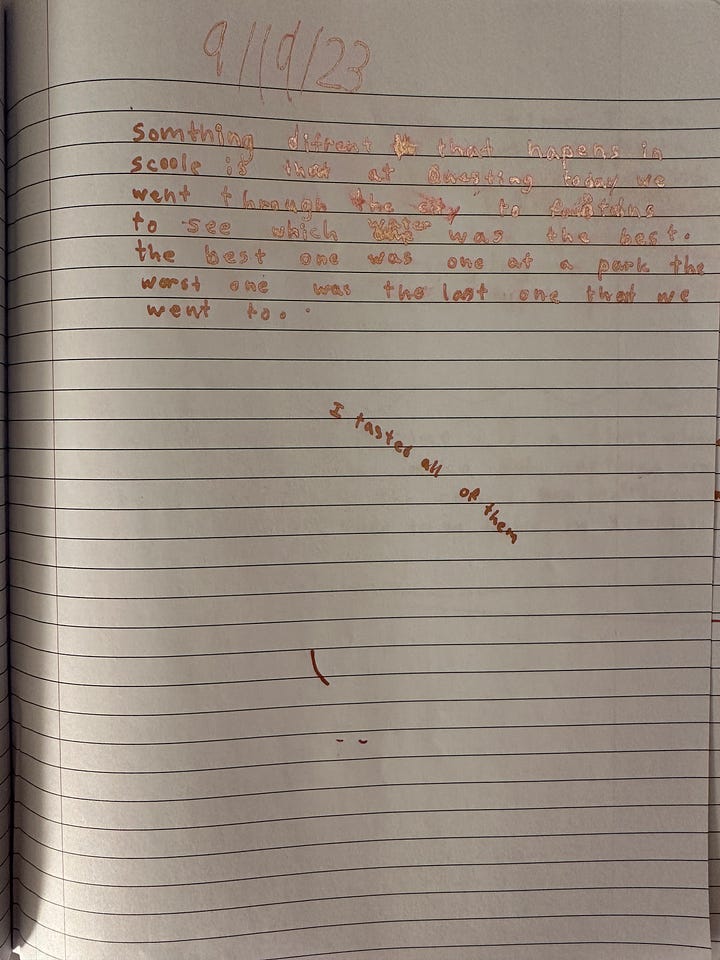 9/19/23
somthing difrent that hapens in
scoole is that at Questing today we
went through the city to fountins
to see which water was the best.
the best one was one at a park the
worst one was the last one that we
went to.
I tasted all of them